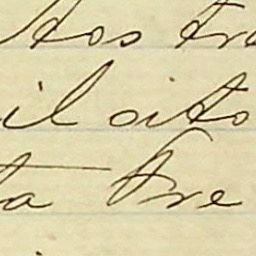 tos tra
il oito
ta Tre